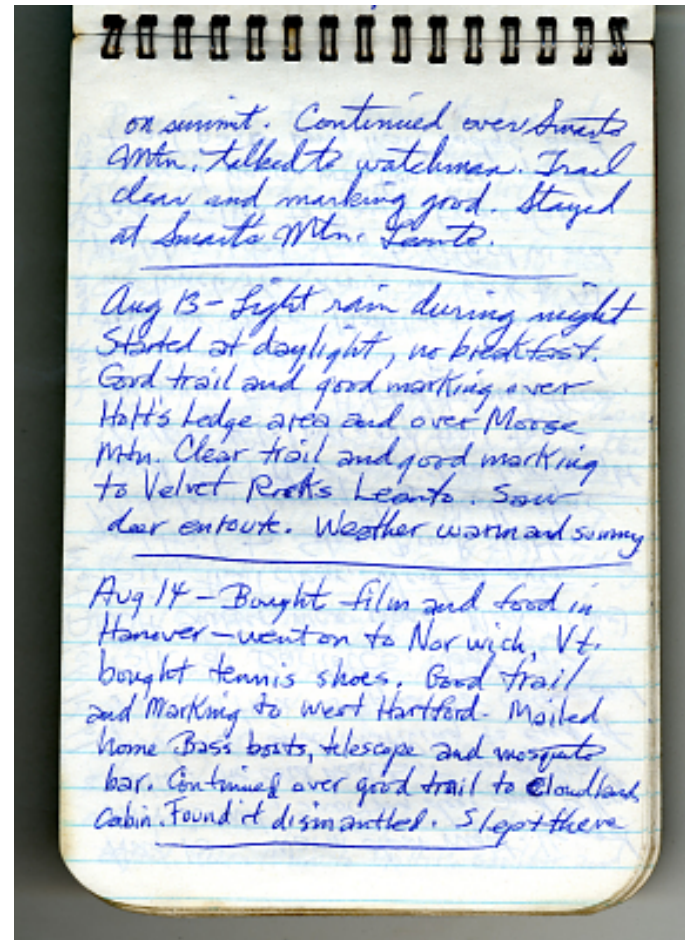 on summit. Continued over Smarts
Mtn. talked to watchman. Trail
clear and marking good. Stayed
at Smarts Mtn. Leanto.
Aug 13 - Light rain during night
Started at daylight, no breakfast.
Good trail and good marking over
Holt's Ledge area and over Moose
Mtn. Clear trail and good marking
to Velvet Rocks Leanto. Saw
deer enroute. Weather warm and sunny
Aug 14 - Bought film and food in
Hanover - went on to Norwich, Vt.
bought tennis shoes. Good trail
and Marking to West Hartford. Mailed
home Bass boots, telescope and mosquito
bar. Continued over good trail to Cloudland
Cabin. Found it dismantled. Slept there